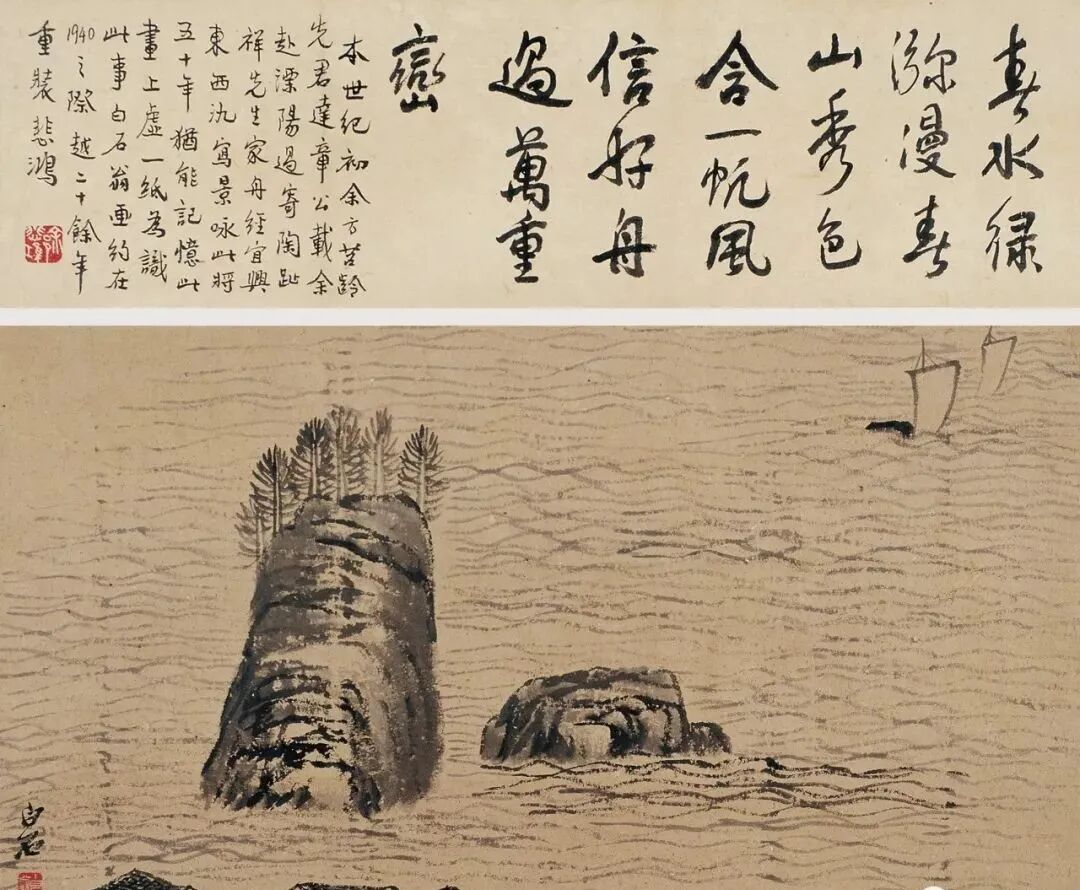 春水緑
瀰漫春
山秀色
含一帆風
信好舟
過萬重
巒
本世紀初余方苕齡
先君達章公載余
赴溧陽過寄陶趾
祥先生家舟經宜興
東西氿寫景咏此將
五十年猶能記憶此
畫上虛一紙為識
此事白石翁画約在
1940之際越二十餘年
重裝悲鴻
白石